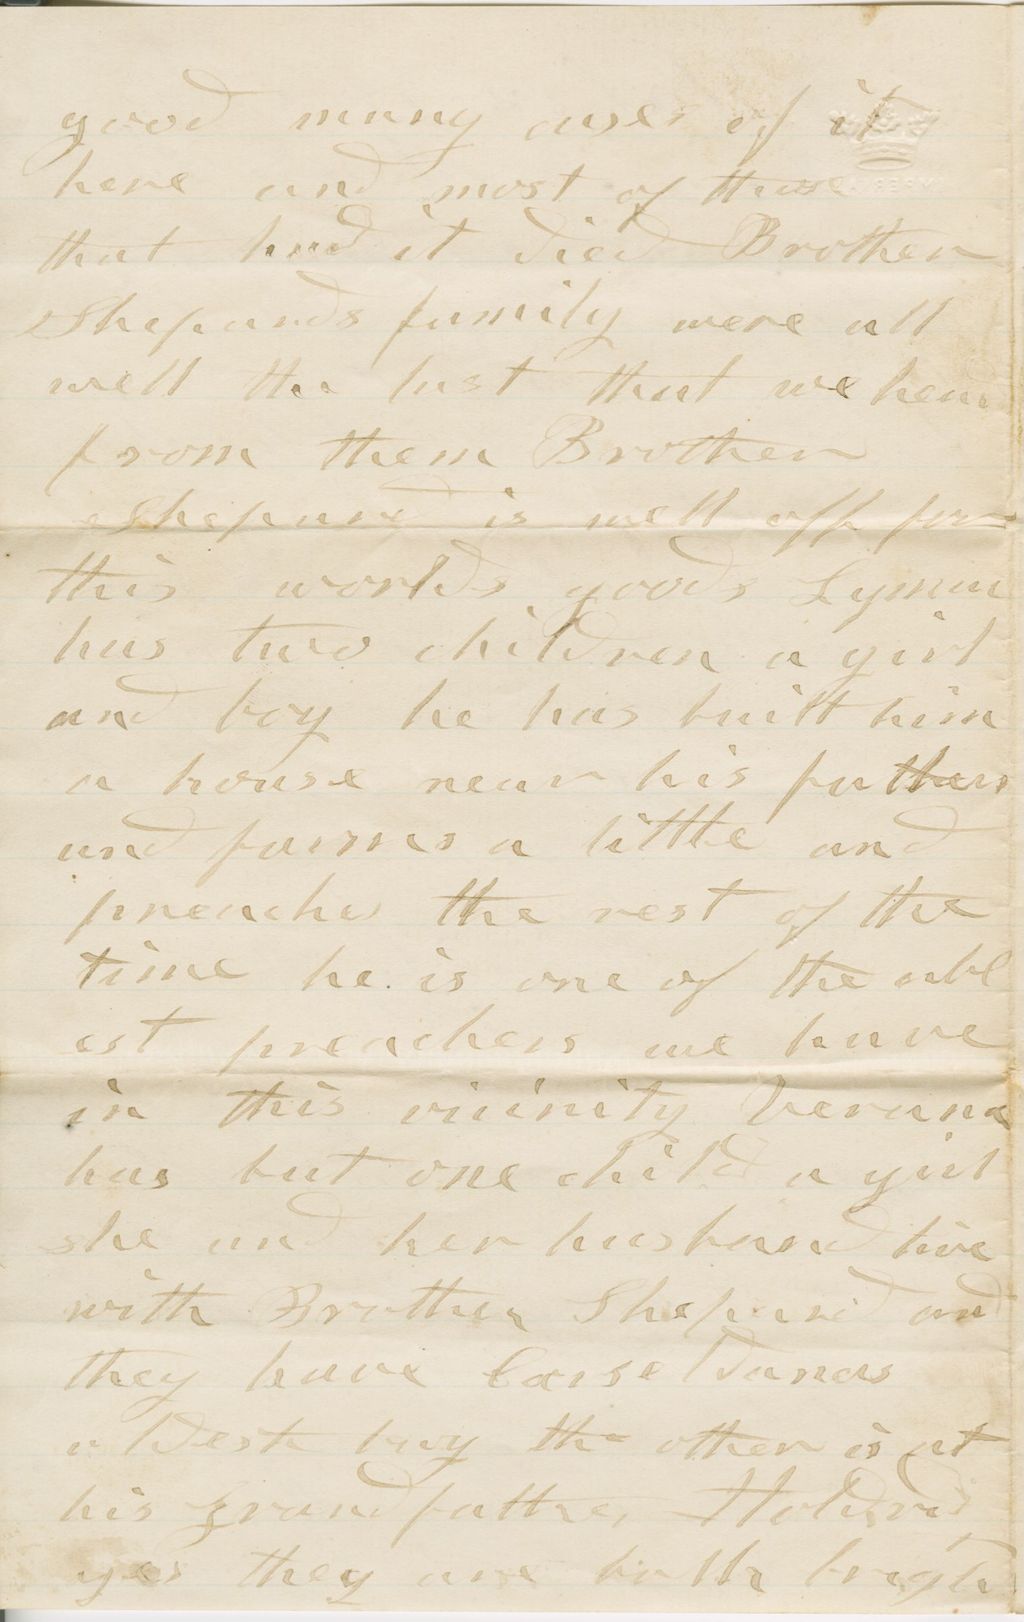 good many cases of it
here and most of those
that had it died Brother
Shepards family were all
well the last that we hear
from them Brother
Shepard is well off for
this worlds goods Lyman
has two children a girl
and boy he has built him
a house near his fathers
and farms a little and
preaches the rest of the
time he is one of the abl
est preachers we have
in this vicinity
has but one child a girl
she and her husband live
with Brother Shepard and
they have
oldest boy the other is at
his Grandfather
yes they are both brigh